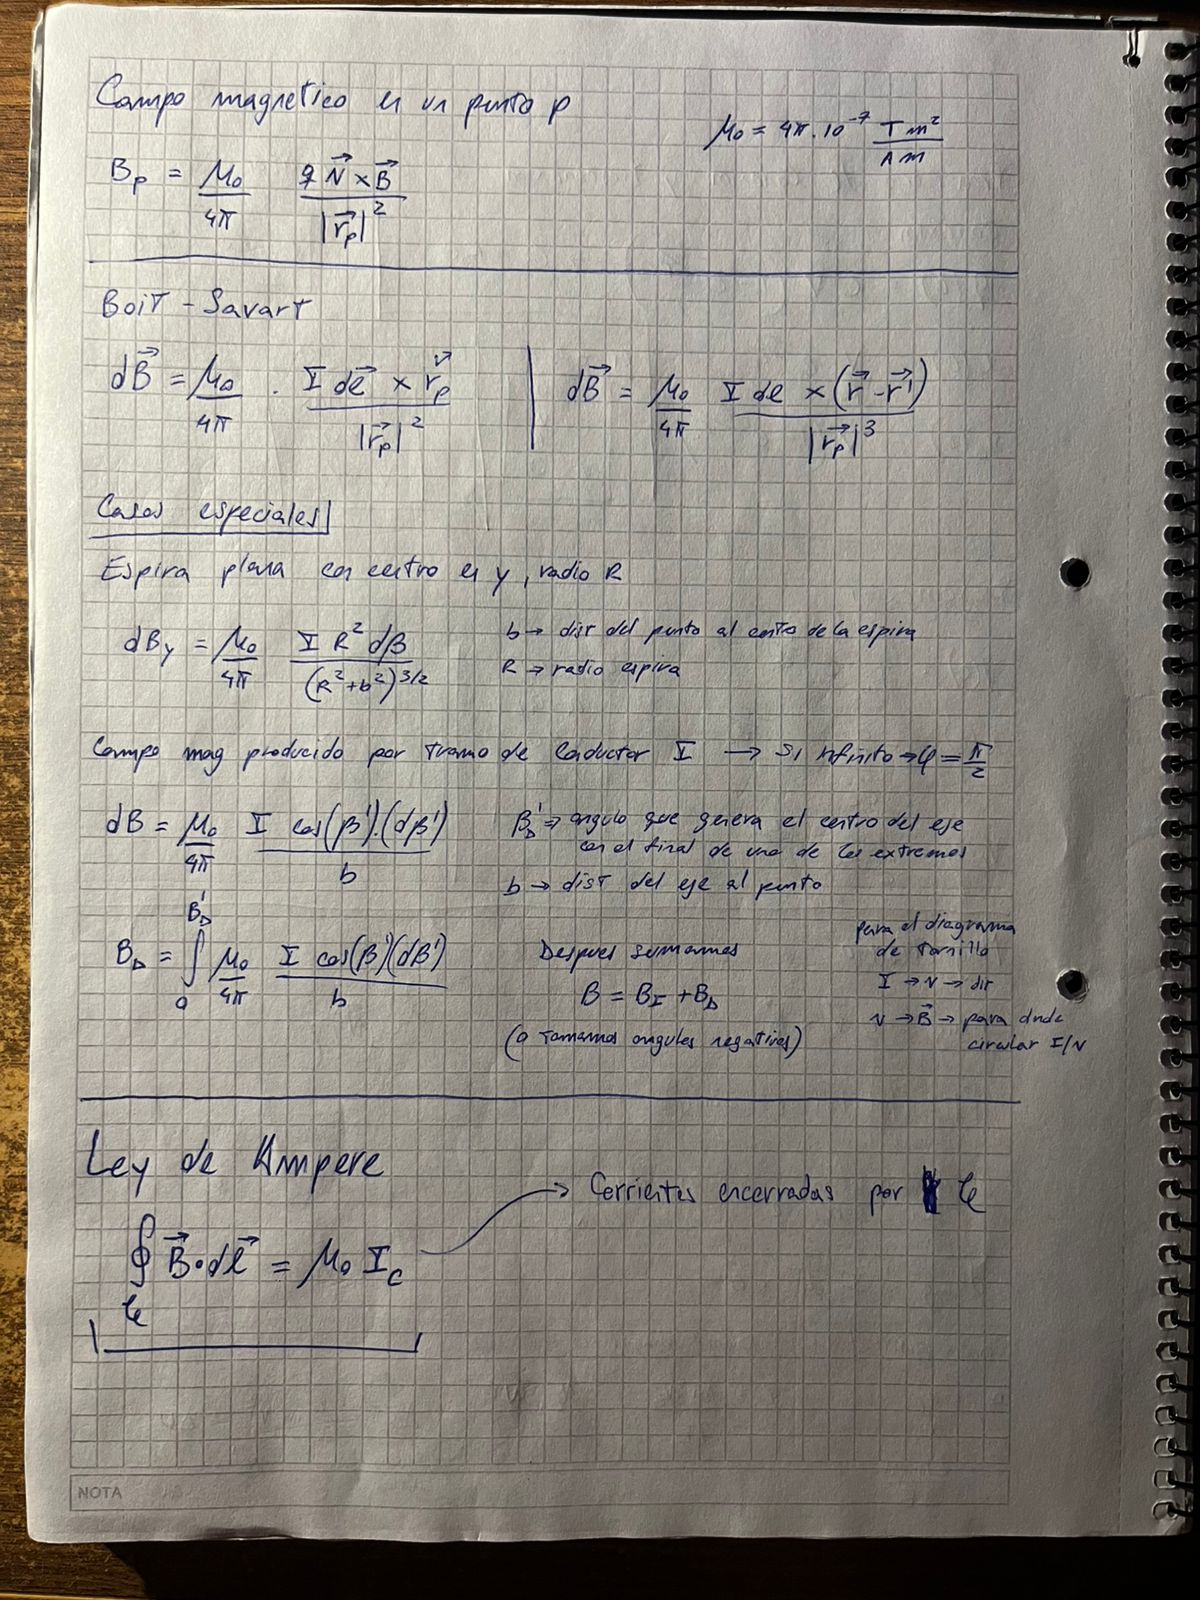 Campo magnetico en un punto p
μ₀ = 4π · 10⁻⁷ T m² / A m
B_p = μ₀/4π q N⃗ × B⃗ / |r⃗_p|²
Boit - Savart
dB⃗ = μ₀/4π · I dℓ⃗ × r⃗_p / |r⃗_p|² | dB⃗ = μ₀/4π I dℓ × (r⃗ - r⃗') / |r⃗_p|³
Casos especiales
Espira plana con centro en y, radio R
dB_y = μ₀/4π I R² dβ / (R² + b²)^3/2
b → dist del punto al centro de la espira
R → radio espira
Campo mag producido por tramo de conductor I → Si infinito → φ = π/2
dB = μ₀/4π I cos(β')·(dβ') / b
β'_D → angulo que genera el centro del eje
con el final de uno de los extremos
b → dist del eje al punto
B_D = ∫₀^B'_D μ₀/4π I cos(β')(dβ') / b
Despues sumamos
B = B_I + B_D
(o tomamos angulos negativos)
para el diagrama
de tornillo
I → N → dir
N → B⃗ → para dnde
circular I/N
Ley de Ampere
∮_C B⃗ · dℓ⃗ = μ₀ I_c → Corrientes encerradas por C
NOTA